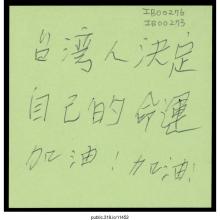 IB00276
IB00273
台湾人決定
自己的命運
加油！加油！
public.318.io/11453